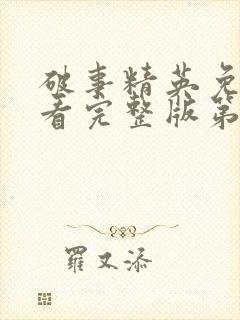 破事精英免
看完整版第
羅又添